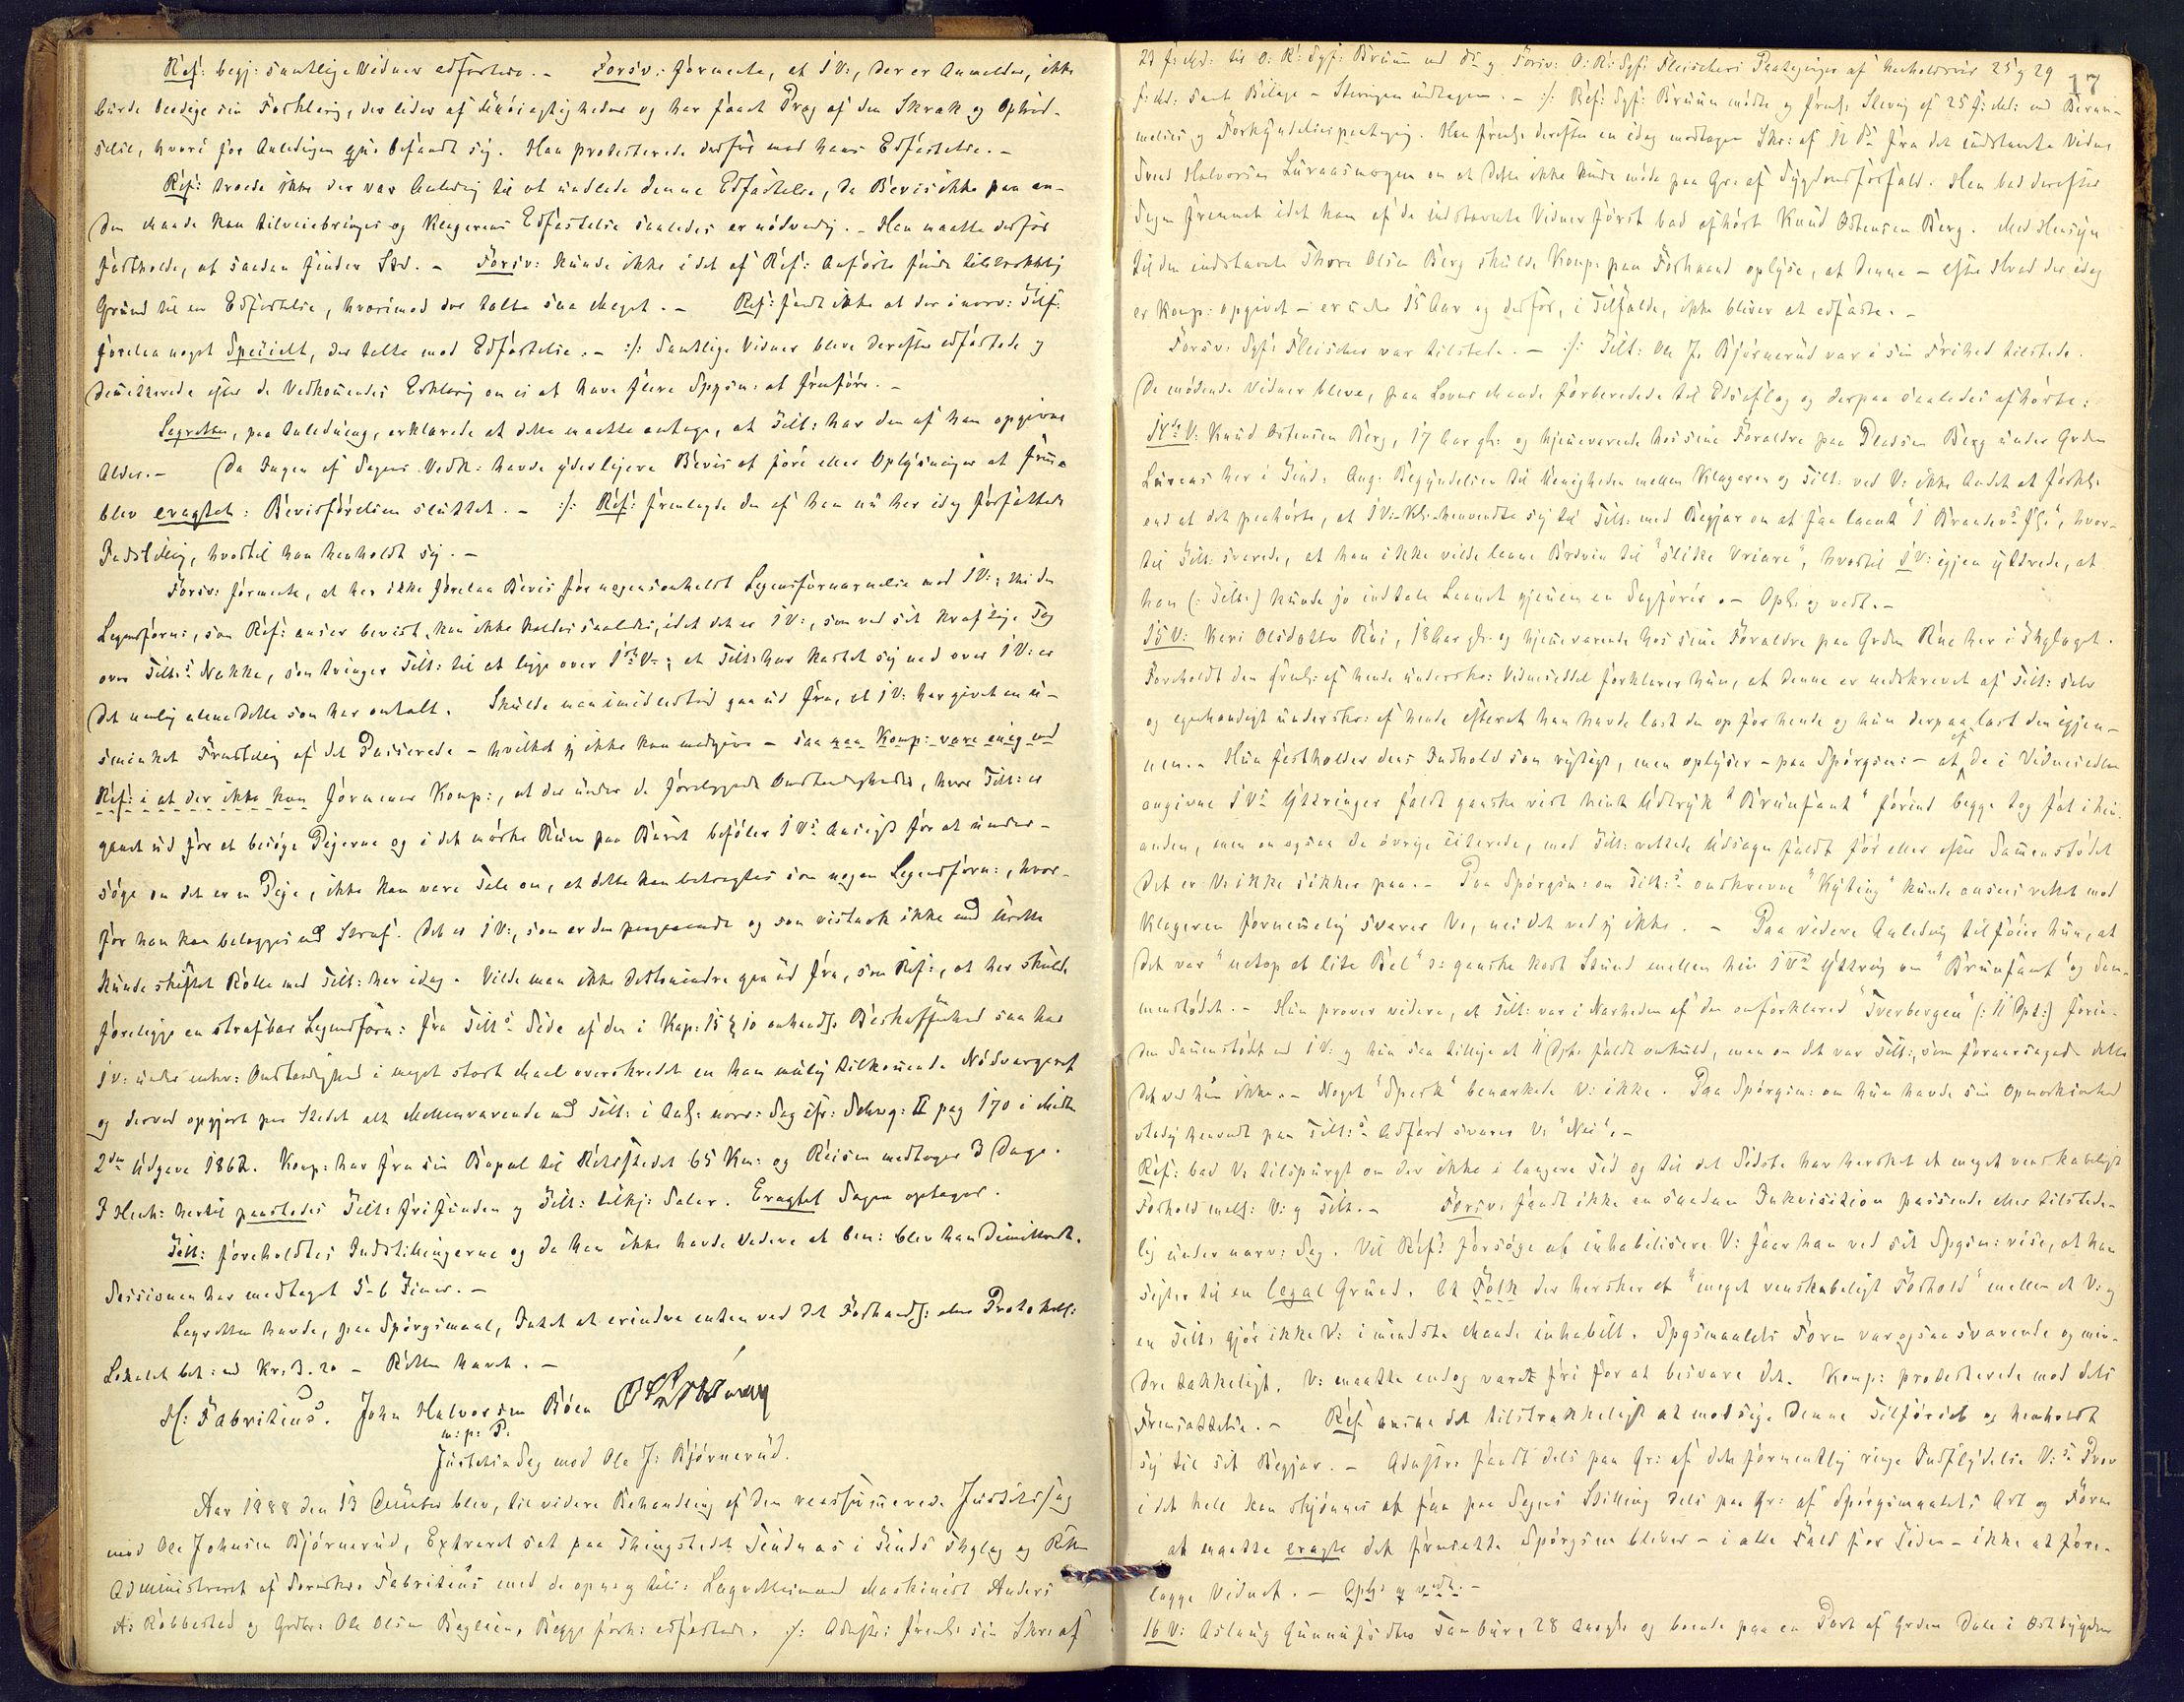 Ref: begj: samtlige Vidner edfæstede. – Forsv: formente, at 1 V:, der er Anmelder, ikke
burde beedige sin Forklaring, der lider af Unøiagtigheder og har faaet Præg af den Skræk og Ophid-
selse, hvori for Anledingen befandt sig. Han protesterede derfor mod hans Edfæstelse. –
Ref: troede ikke der var Anledng til at undlade denne Edfæstelse, da Bevis ikke paa an-
den Maade kan tilveiebringes og Klagerens Edfæstelse saaledes er nødvendig. – Han maatte derfor
fastholde, at saadan finder Sted. – Forsv: kunde ikke i det af Ref: Anførte finde tilstrækkelig
Grund til en Edfæstelse, hvorimod der talte saa Meget. – Ref: fandt ikke at der i nærv: Tilf:
forelaa noget Specielt, der talte mod Edfæstelse. – :/: Samtlige Vidner bleve derefter edfæstede og
demitterede efter de Vedkommendes Erklæring om ei at have flere Spgsm: at fremføre. –
Lagretten, paa Anledning, erklærede at dette maatte antage, at Tilt: har den af ham opgivne
Alder. – Da Ingen af Sagens Vedk: havde yderligere Bevis at føre eller Oplysninger at
blev eragtet: Bevisførelsen sluttet. – :/: Ref: fremlagde den af ham nu her idag forfattede
Indstilling, hvortil han henholdt sig. –
Forsv: formente, at her ikke forelaa Bevis for nogensomhelst Legemsfornærmelse mod 1 V:; thi den
Legemsforn:, som Ref: anser bevist, kan ikke kaldes saaledes, idet det er 1 V:, som ved sit kraftige Tag
over Tilt:s Nakke, som tvinger Tilt: til at ligge over 1ste V:; at Tilt: har kastet sig ned over 1 V: er
det nemlig alene dette som har omtalt. Skulde man imidlertid gaa ud fra, at 1 V: har givet en u-
sminket Fremstilling af det Passerede – hvilket jeg ikke kan medgive – saa maa Komp: være enig med
Ref: i at der ikke kan formener Komp:, at der under de foreliggende Omstændigheder, hvor Tilt: er
gaaet ud for at besøge Pigerne og i det mørke Rum paa Buret beføler 1 V:s Ansigt for at under-
søge om det er en Pige, ikke kan være Tale om, at dette kan betragtes som nogen Legemsforn:, hvor-
for han kan belægges med Straf. Det er 1 V:, som er den paagaaende og som vistnok ikke med Urette
kunde skiftet Rolle med Tilt: her idag. Vilde man ikke destomindre gaa ud fra, som Ref:, at her skulde
foreligge en strafbar Legemsforn: fra Tilt:s Side af den i Kap: 15 § 10 omhandl: Beskaffenhed saa har
1 V: under enhv: Omstændighed i meget stort Maal overskredet en ham mulig tilkommende Nødværgeret
og derved opgjort paa Stedet alt Mellemværende med Tilt: i Anl: nærv: Sag cfr: Schwg: II pag 170 i Midten
2den Udgave 1862. Komp: har fra sin Bopæl til Retsstedet 65 Km: og Reisen medtager 3 Dage.
I Henh: hertil paastodes Tilt: frifunden og Tilt: tilkj: Salær. Eragtet Sagen optages.
Tilt: foreholdtes Indstillingerne og da han ikke havde Videre at bem: blev han dimitteret.
Sessionen har medtaget 5-6 Timer. –
Lagretten havde, paa Spørgsmaal, Intet at erindre enten ved det Forhandl: eller Protokoll:
Lokalet bet: med Kr: 3.20 – Retten hævet. –
H: Fabritius. John Halvorsen Bøen
m: p: P.
Justits-Sag mod Ole J: Bjørnerud.
Aar 1888 den 13 December blev, til videre Behandling af den reassumerede Justitssag
mod Ole Johnsen Bjørnerud, Extraret sat paa Thingstedet Tinduaas i Tinds Thglag og Rtn
Administreret af Sorenskr: Fabritius med de opnvg tili: Lagrettesmænd Maskinist Anders
A: Rabbested og Grdbr: Ole Olsen Baglien, Begge forh: edfæstede. :/: Admstr: freml: sin Skr: af
17
29 f: Md: til O: R: Sgf: Bruun med og Forsv: O: R: Sgf: Fleischers Paategninger af henholdsvis 25 og 29
f: Md: samt Bilage – Stevningen undtagen. – :/: Ref: Sgf: Bruun mødte og freml: Stevng af 25 f: Md: med Beram-
melses og Forkyndelsespaategng. Han freml: derefter en idag modtagen Skr: af fra det indstævnte Vidne
Svend Halvorsen Luraasmogen om at dette ikke kunde møde paa Gr: af Sygdomsforfald. Han bad derefter
Sagen fremmet idet han af de indstævnte Vidner først bad afhørt Knud Østensen Berg. Med Hensyn
til den indstævnte Thore Olsen Berg skulde Komp: paa Forhaand oplyse, at denne – efter Hvad der idag
er Komp: opgivet – er under 15 Aar og derfor, i Tilfælde, ikke bliver at edfæste. –
Forsv: Sgf: Fleischer var tilstede. – :/: Tilt: Ole J. Bjørnerud var i sin Frihed tilstede.
De mødende Vidner bleve, paa Lovens Maade forberedede til Edsaflæg og derpaa saaledes afhørte:
14de V: Knud Østensen Berg, 17 Aar gl: og hjemmeværende hos sine Forældre paa Pladsen Berg under Grden
Luraas her i Tind. Ang: Begyndelsen til Uenigheden mellem Klageren og Tilt: ved V: ikke Andet at forkl:
end at det paahørte, at 1 V: – Kl: – henvendte sig til Tilt: med Begjær om at faa laant "1 Brændevs Fl:", hvor-
til Tilt: svarede, at han ikke vilde laane Brdvin til "slike Vriare", hvortil 1 V: igjen yttrede, at
han (: Tilt:) kunde jo indtale Laanet gjennem en Sagfører. – Opl: og vedt. –
15 V: Kari Olsdatter Rui, 18 Aar gl: og hjemmeværende hos sine Forældre paa Grden Rue her i Thglaget.
Foreholdt den freml: af hende underskr: Vidneseddel forklarer hun, at denne er nedskrevet af Tilt: selv
og egenhændigt underskr: af hende efterat han havde læst den op for hende og hun derpaa læst den igjen-
nem. – Hun fastholder dens Indhold som rigtigt, men oplyser – paa Spørgsm: – at af de i Vidnesedlen
angivne 1 V:s Yttringer faldt ganske vist hint Udtryk "Brunfant" førend begge tog fat i hin-
anden, men om ogsaa de øvrige citerede, mod Tilt: rettede Udsagn faldt før eller efter Sammenstødet
det er V: ikke sikker paa. – Paa Spørgsm: om Tilt:s omskrevne "Kyting" kunde ansees rettet mod
Klageren fornemmelig svarer V:, nei det ved jeg ikke. – Paa videre Anledng tilføier hun, at
det var "netop et lite Bel" ɔ: ganske kort Stund mellem hin 1 V:s Yttring om "Brunfant" og Sam-
menstødet. – Hun prover videre, at Tilt: var i Nærheden af den omforklarede "Tverbergen" (: 11 Dpt:) foren-
den Sammenstødet med 1 V: og hun saa tillige at 11 Dpt: faldt omkuld, men om det var Tilt:, som foraarsagede dette
det ved hun ikke. – Noget "Spark" bemærkede V: ikke. Paa Spørgsm: om hun havde sin Opmærksomhed
stadig henvendt paa Tilt:s Adfærd svarer V: "Nei". –
Ref: bad V: tilspurgt om der ikke i længere Tid og til det Sidste har hersket et meget venskabeligt
Forhold mell: V: og Tilt. – Forsv: fandt ikke en saadan Inkvisition passende eller tilstede-
lig under nærv: Sag. Vil Ref: forsøge at inhabilisere V: faar han ved sit Spgsm: vise, at han
sigter til en legal Grund. At Folk der hersker et "meget venskabeligt Forhold" mellem et V: og
en Tilt: gjør ikke V: i mindste Maade inhabilt. Spgsmaalets Form var ogsaa svævende og min-
dre takkeligt. V: maatte endog været fri for at besvare det. Komp: protesterede mod dets
Fremsættelse. – Ref: ansaa det tilstrækkeligt at modsige denne Tilførsel og henholdt
sig til sit Begjær. – Admstr: fandt dels paa Gr: af den formentlig ringe Indflydelse V:s Prov
i det hele kan skjønnes at faa paa Sagens Stilling dels paa Gr: af Spørgsmaalets Art og Form
at maatte eragte det fremsatte Spørgsm bliver – i alle Fald for Tiden – ikke at fore-
lægge Vidnet. – Opl: og vedt. –
16 V: Aslaug Gunnufsdtr Tambur, 28 Aar gl: og boende paa en Part af Grden Dale i Østbygden